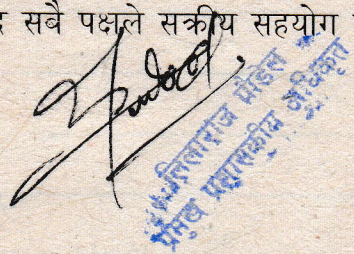 सबै पक्षले सक्रीय सहयोग
लिलाराज पौडेल
प्रमुख प्रशासकीय अधिकृत